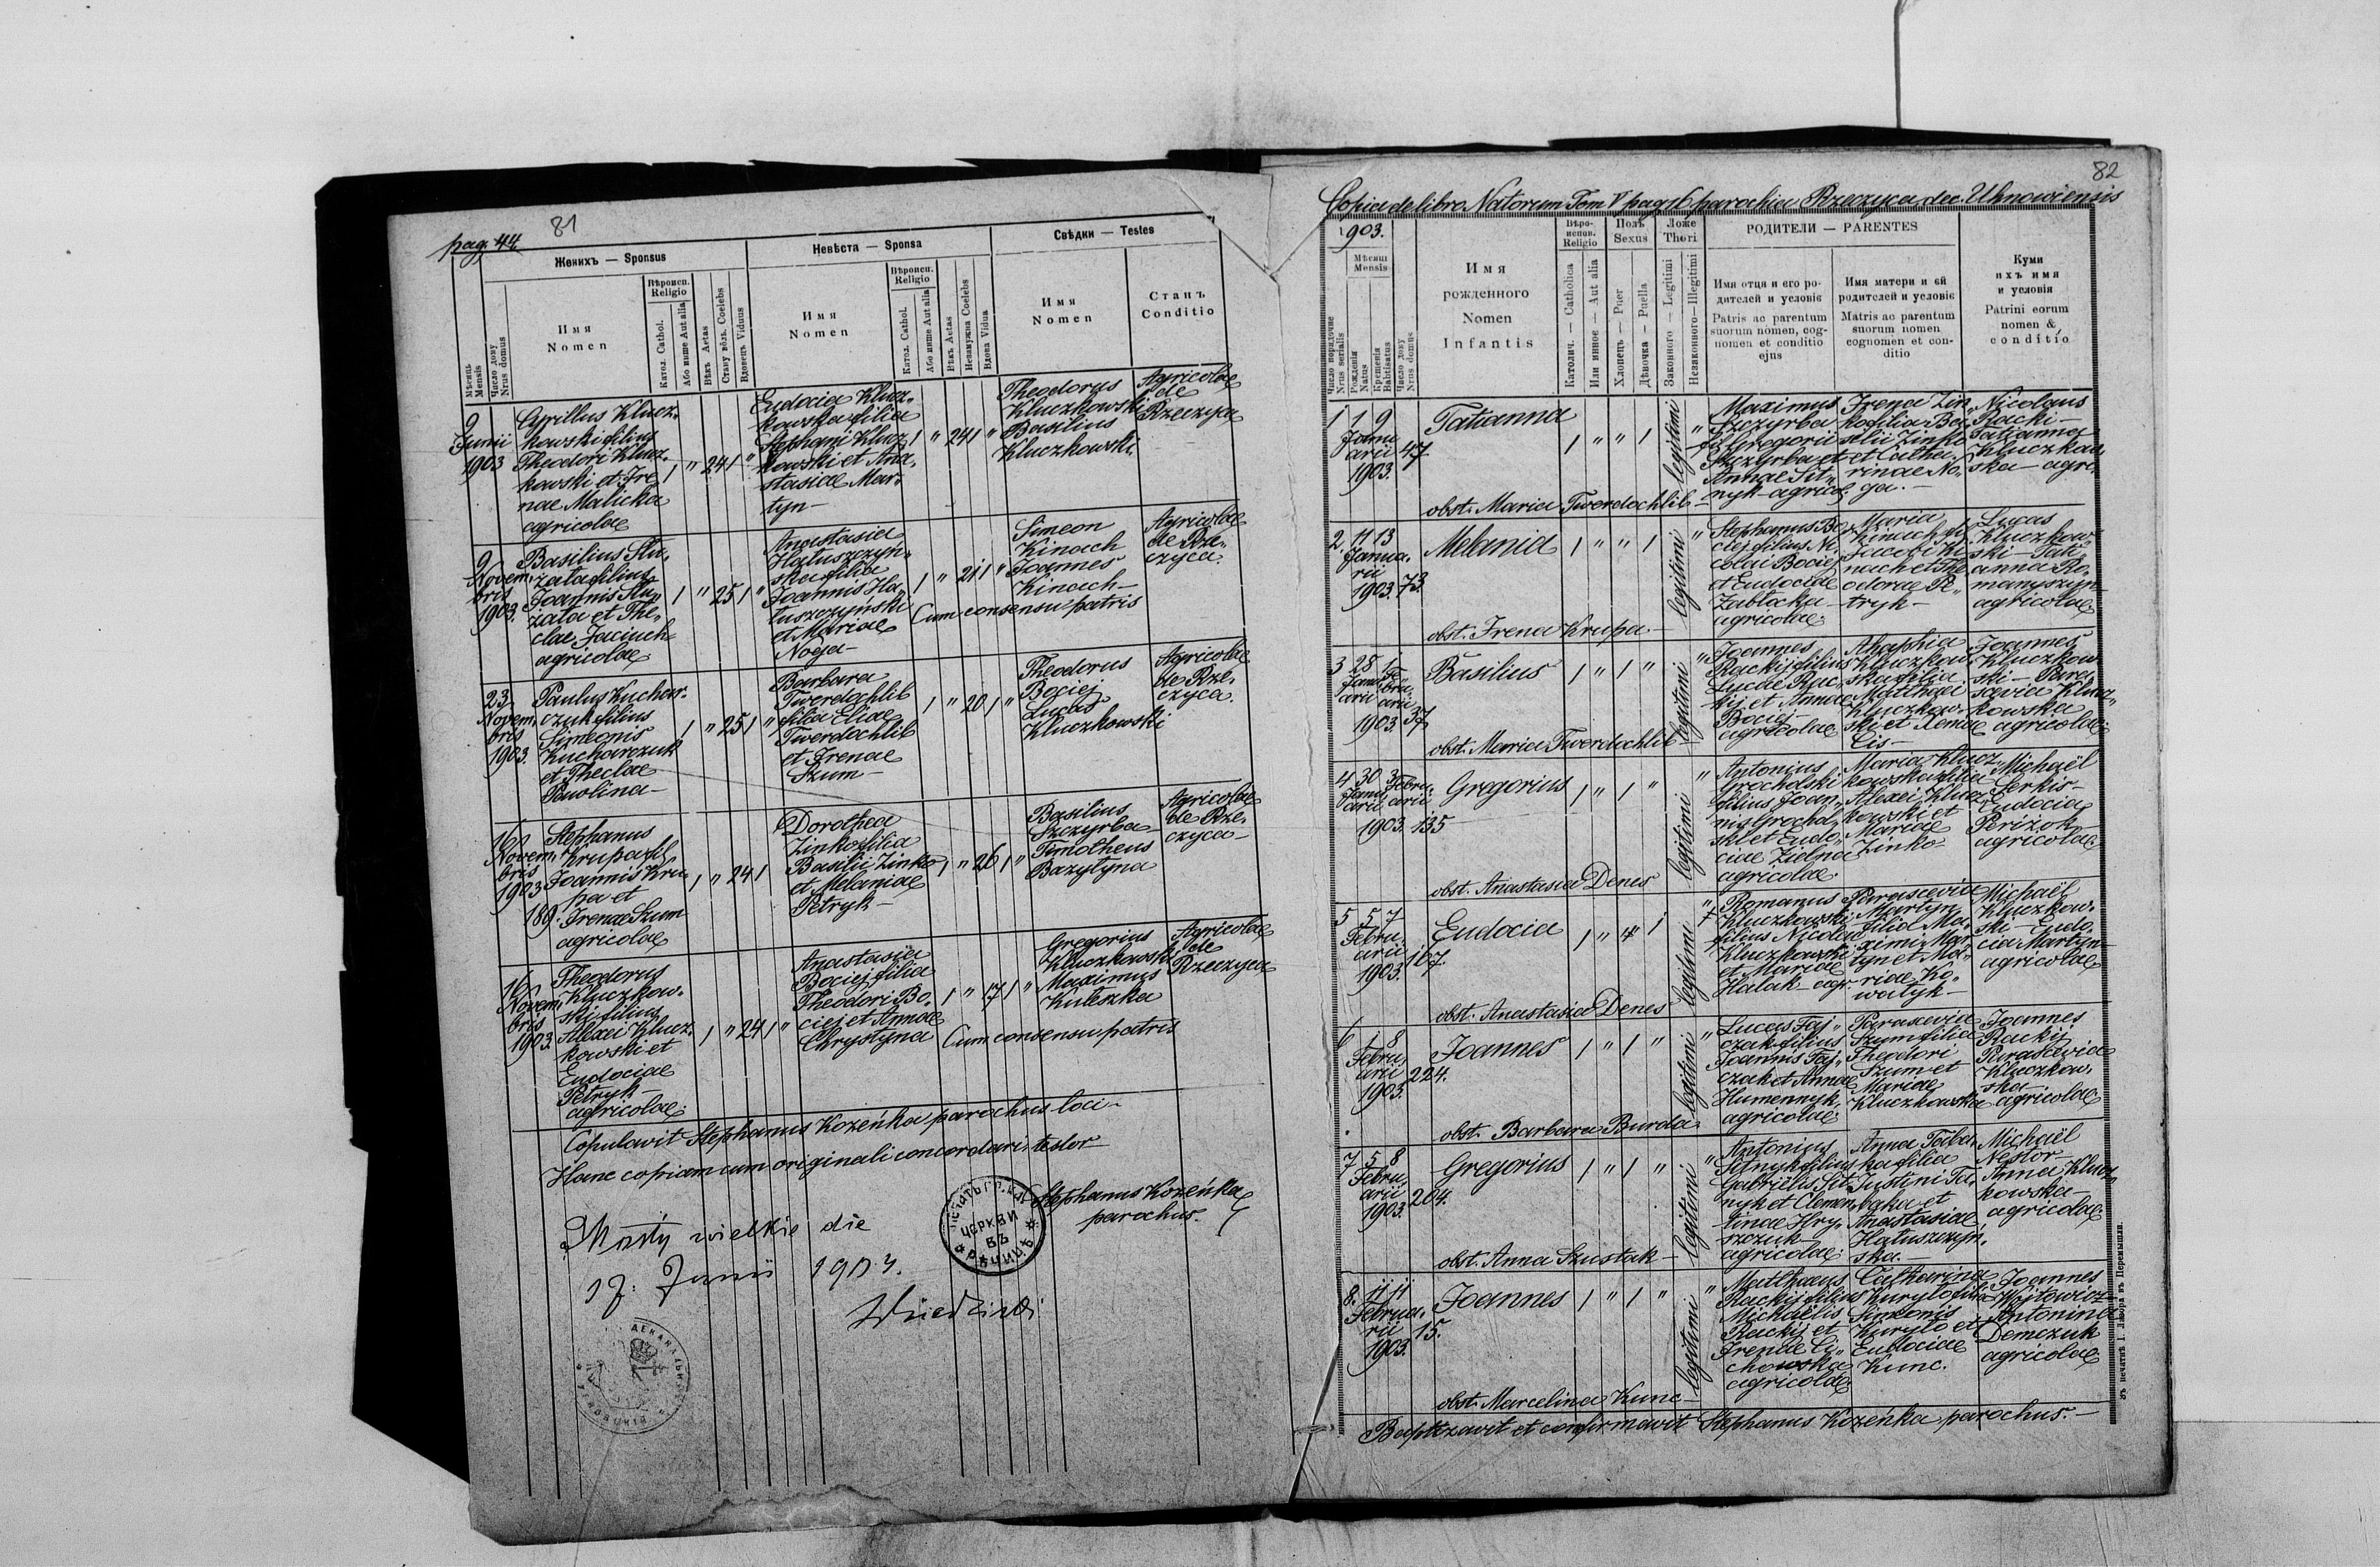 81
pag. 44
Женихъ — Sponsus
Невѣста — Sponsa
Свѣдки — Testes
Мѣсяць
Mensis
Число дому
Nrus domus
Имя
Nomen
Вѣроисп.
Religio
Катол. Cathol.
Або инше Aut alia
Вѣкъ Aetas
Стану вôль. Coelebs
Вдовець Viduus
Имя
Nomen
Вѣроисп.
Religio
Катол. Cathol.
Або инше Aut alia
Вѣкъ Aetas
Незамужна Coelebs
Вдова Vidua
Имя
Nomen
Станъ
Conditio
9
Junii
1903
Cyrillus Klucz-
kowski filius
Theodori Klucz-
kowski et Ire-
nae Malicka
agricolae
1 " 24 1 "
Eudocia Klucz-
kowska filia
Stephani Klucz-
kowski et Ana-
stasiae Mar-
tyn —
1 " 24 1 "
Theodorus
Kluczkowski
Basilius
Kluczkowski
Agricolae
de
Rzeczyca
9
Novem-
bris
1903.
Basilius
filius
Joannis
et The-
clae Jaciuch
agricolae
1 " 25 1 "
Anastasia
Hałuszczyn-
ska filia
Joannis Ha-
łuszczyński
et Mariae
Noga —
1 " 21 1 "
Cum consensu patris
Simeon
Kinach
Joannes
Kinach —
Agricolae
de Rze-
czyca.
23
Novem-
bris
1903.
Paulus Kuchar-
czuk filius
Simeonis
Kucharczuk
et Theclae
Pawlina —
1 " 25 1 "
Barbara
Twerdochlib
filia Eliae
Twerdochlib
et Irenae
Szum —
1 " 20 1 "
Theodorus
Bociej
Lucas
Kluczkowski
Agricolae
de Rze-
czyca.
16
Novem-
bris
1903
189.
Stephanus
Krupa fil.
Joannis Kru-
pa et
Irenae Szum
agricolae
1 " 24 1
Dorothea
Zinko filia
Basilii Zinko
et Melaniae
Petryk —
1 " 26 1 "
Basilius
Szczyrba —
Timotheus
Bazylyna
Agricolae
de Rze-
czyca —
16
Novem-
bris
1903.
Theodorus
Kluczkow-
ski filius
Alexei Klucz-
kowski et
Eudociae
Petryk —
agricolae
1 " 24 1 "
Anastasia
Bociej filia
Theodori Bo-
ciej et Annae
Chrystyna
1 " 17 1 "
Cum consensu patris
Gregorius
Kluczkowski
Maximus
Kuleszka
Agricolae
de
Rzeczyca
Copulavit Stephanus Kozeńka parochus loci —
Hanc copiam cum originali concordari testor
Stephanus Kozeńka
parochus.
ЦЕРКВИ
ВЪ
Mosty wielkie die
17. Junii 1904.
82
Copia de libro Natorum Tom V pag. 16 parochia Rzeczyca, dec. Uhnowiensis
1903.
Мѣсяцъ
Mensis
Число порядочне
Nrus serialis
Рожденія
Natus
Крещенія
Babtisatus
Число дому
Nrus domus
Имя
рожденного
Nomen
Infantis
Вѣро-
испов.
Religio
Католич. — Catholica
Или инное — Aut alia
Полъ
Sexus
Хлопець — Puer
Дѣвочка — Puella
Ложе
Thori
Законного — Legitimi
Незаконного — Illegitimi
РОДИТЕЛИ — PARENTES
Имя отця и его ро-
дителей и условіє
Patris ac parentum
suorum nomen, cog-
nomen et conditio
ejus
Имя матери и єй
родителей и условіє
Matris ac parentum
suorum nomen
cognomen et con-
ditio
Куми
ихъ имя
и условія
Patrini eorum
nomen &
conditio
1 1 9
Janu-
arii
1903.
47
Tatianna
1 " " 1
legitimi
"
Maximus
Szczyrba
fil. Gregorii
Szczyrba et
Annae Sit-
nyk — agricol.
Irena Zin-
ko filia Ba-
silii Zinko
et Catha-
rinae No-
ga. —
Nicolaus
Racki —
Tatianna
Kluczkow-
ska — agri.
obst. Maria Twerdochlib —
2. 11 13
Janua-
rii
1903. 73.
Melania
1 " " 1
legitimi
"
Stephanus Bo-
ciej filius Ni-
colai Bociej
et Eudociae
Zabłocka —
agricolae
Maria
Kinach fil.
Jacobi Ki-
nach et The-
odorae Pe-
tryk —
Lucas
Kluczkow-
ski — Tati-
anna Ro-
manyszyn —
agricolae
obst. Irena Krupa. —
3 28 1
Janu-
arii
Febru-
arii
1903. 37
Basilius
1 " 1 "
legitimi
"
Joannes
Rackij filius
Lucae Rac-
kij et Annae
Bociej —
agricolae
Ahaphia
Kluczkow-
ska filia
Matthaei
Kluczkow-
ski et Xeniae
Cis —
Joannes
Kluczkow-
ski — Para-
scevia Klucz-
kowska
agricolae
obst. Maria Twerdochlib —
4 30 3
Janu-
arii
Febru-
arii
1903. 135
Gregorius
1 " 1 "
legitimi
"
Antonius
Grocholski
filius Joan-
nis Grochol-
ski et Eudo-
ciae Zielna
agricolae
Maria Klucz-
kowska filia
Alexei Klucz-
kowski et
Mariae
Zinko
Michaël
Serkis —
Eudocia
Perižok —
agricolae
obst. Anastasia Denes
5 5 7
Febru-
arii
1903.
167.
Eudocia
1 " " 1
legitimi
"
Romanus
Kluczkowski
filius Nicolai
Kluczkowski
et Mariae
Hałak — agr.
Parascevia
Martyn
filia Ma-
ximi Mar-
tyn et Ma-
riae Ko-
walyk —
Michaël
Kluczkow-
ski — Eudo-
cia Martyn —
agricolae
obst. Anastasia Denes
6 1 8
Febru-
arii
1903.
224.
Joannes
1 " 1 "
legitimi
"
Lucas Faj-
czak filius
Joannis Faj-
czak et Annae
Humennyk.
agricolae
Parascevia
Szum filia
Theodori
Szum et
Mariae
Kluczkowska
Joannes
Rackij
Parascevia
Kluczkow-
ska
agricolae
obst. Barbara Burda
7 5 8
Febru-
arii
1903.
204.
Gregorius
1 " 1 "
legitimi
"
Antonius
Sitnyk filius
Gabriëlis Sit-
nyk et Clemen-
tinae Hry-
szczuk —
agricolae
Anna Taba-
ka filia
Justini Ta-
baka et
Anastasiae
Hałuszczyn-
ska. —
Michaël
Nestor —
Anna Klucz-
kowska —
agricolae
obst. Anna Szustak —
8. 11 11
Februa-
rii
1903.
15.
Joannes
1 " 1 "
legitimi
"
Matthaeus
Rackij filius
Michaëlis
Rackij et
Irenae Ci-
chowska
agricolae
Catharina
Kuryło filia
Simeonis
Kuryło et
Eudociae
Kunc.
Joannes
Wojtowicz
Antonina
Demczuk
agricolae
obst. Marcelina Kunc —
Baptizavit et confirmavit Stephanus Kozeńka parochus. —